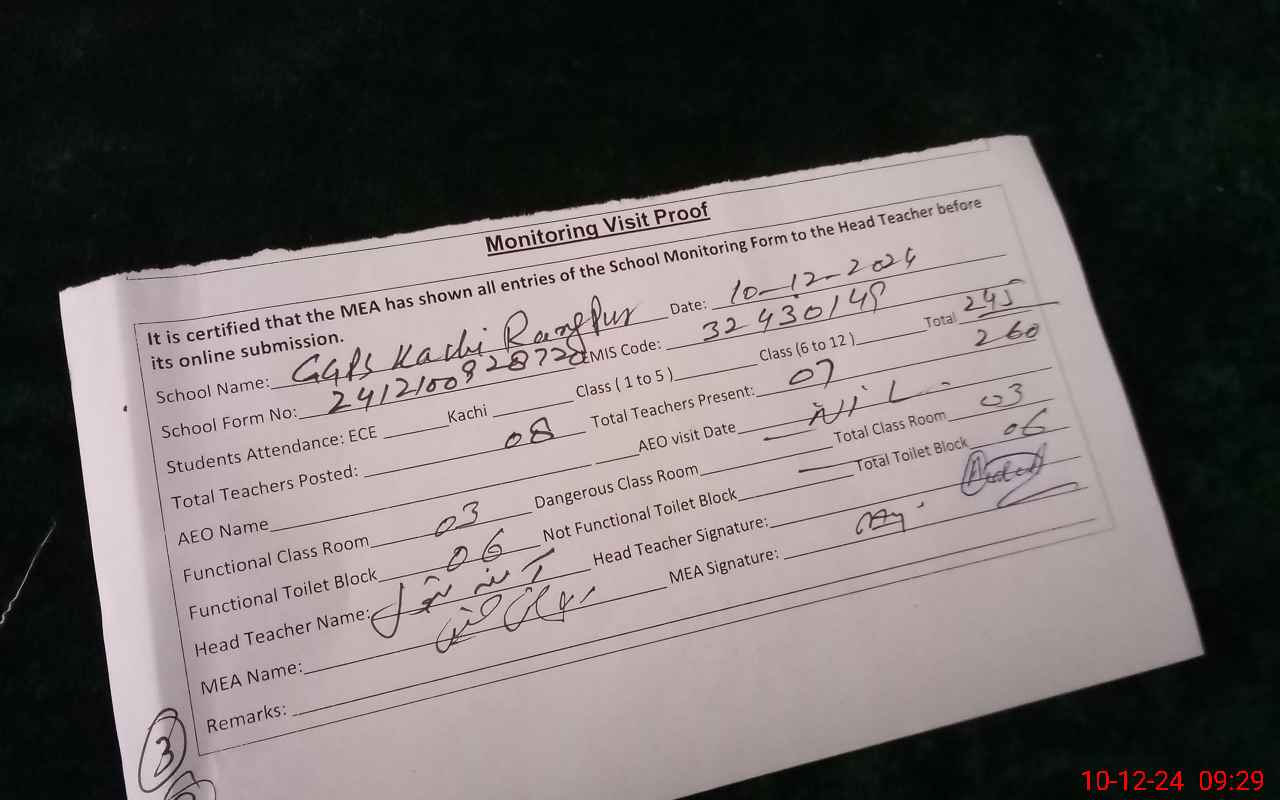 Monitoring Visit Proof
It is certified that the MEA has shown all entries of the School Monitoring Form to the Head Teacher before
its online submission.
School Name: GGPS Kachi Rangpur Date: 10-12-2024
School Form No: EMIS Code: 32430149
Students Attendance: ECE Kachi Class ( 1 to 5 ) Class (6 to 12 ) Total 245
260
Total Teachers Posted: 08 Total Teachers Present: 07
AEO Name AEO visit Date NIL
Functional Class Room 03 Dangerous Class Room Total Class Room 03
Functional Toilet Block 06 Not Functional Toilet Block Total Toilet Block 06
Head Teacher Name: Head Teacher Signature:
MEA Name: MEA Signature:
Remarks:
3
10-12-24 09:29